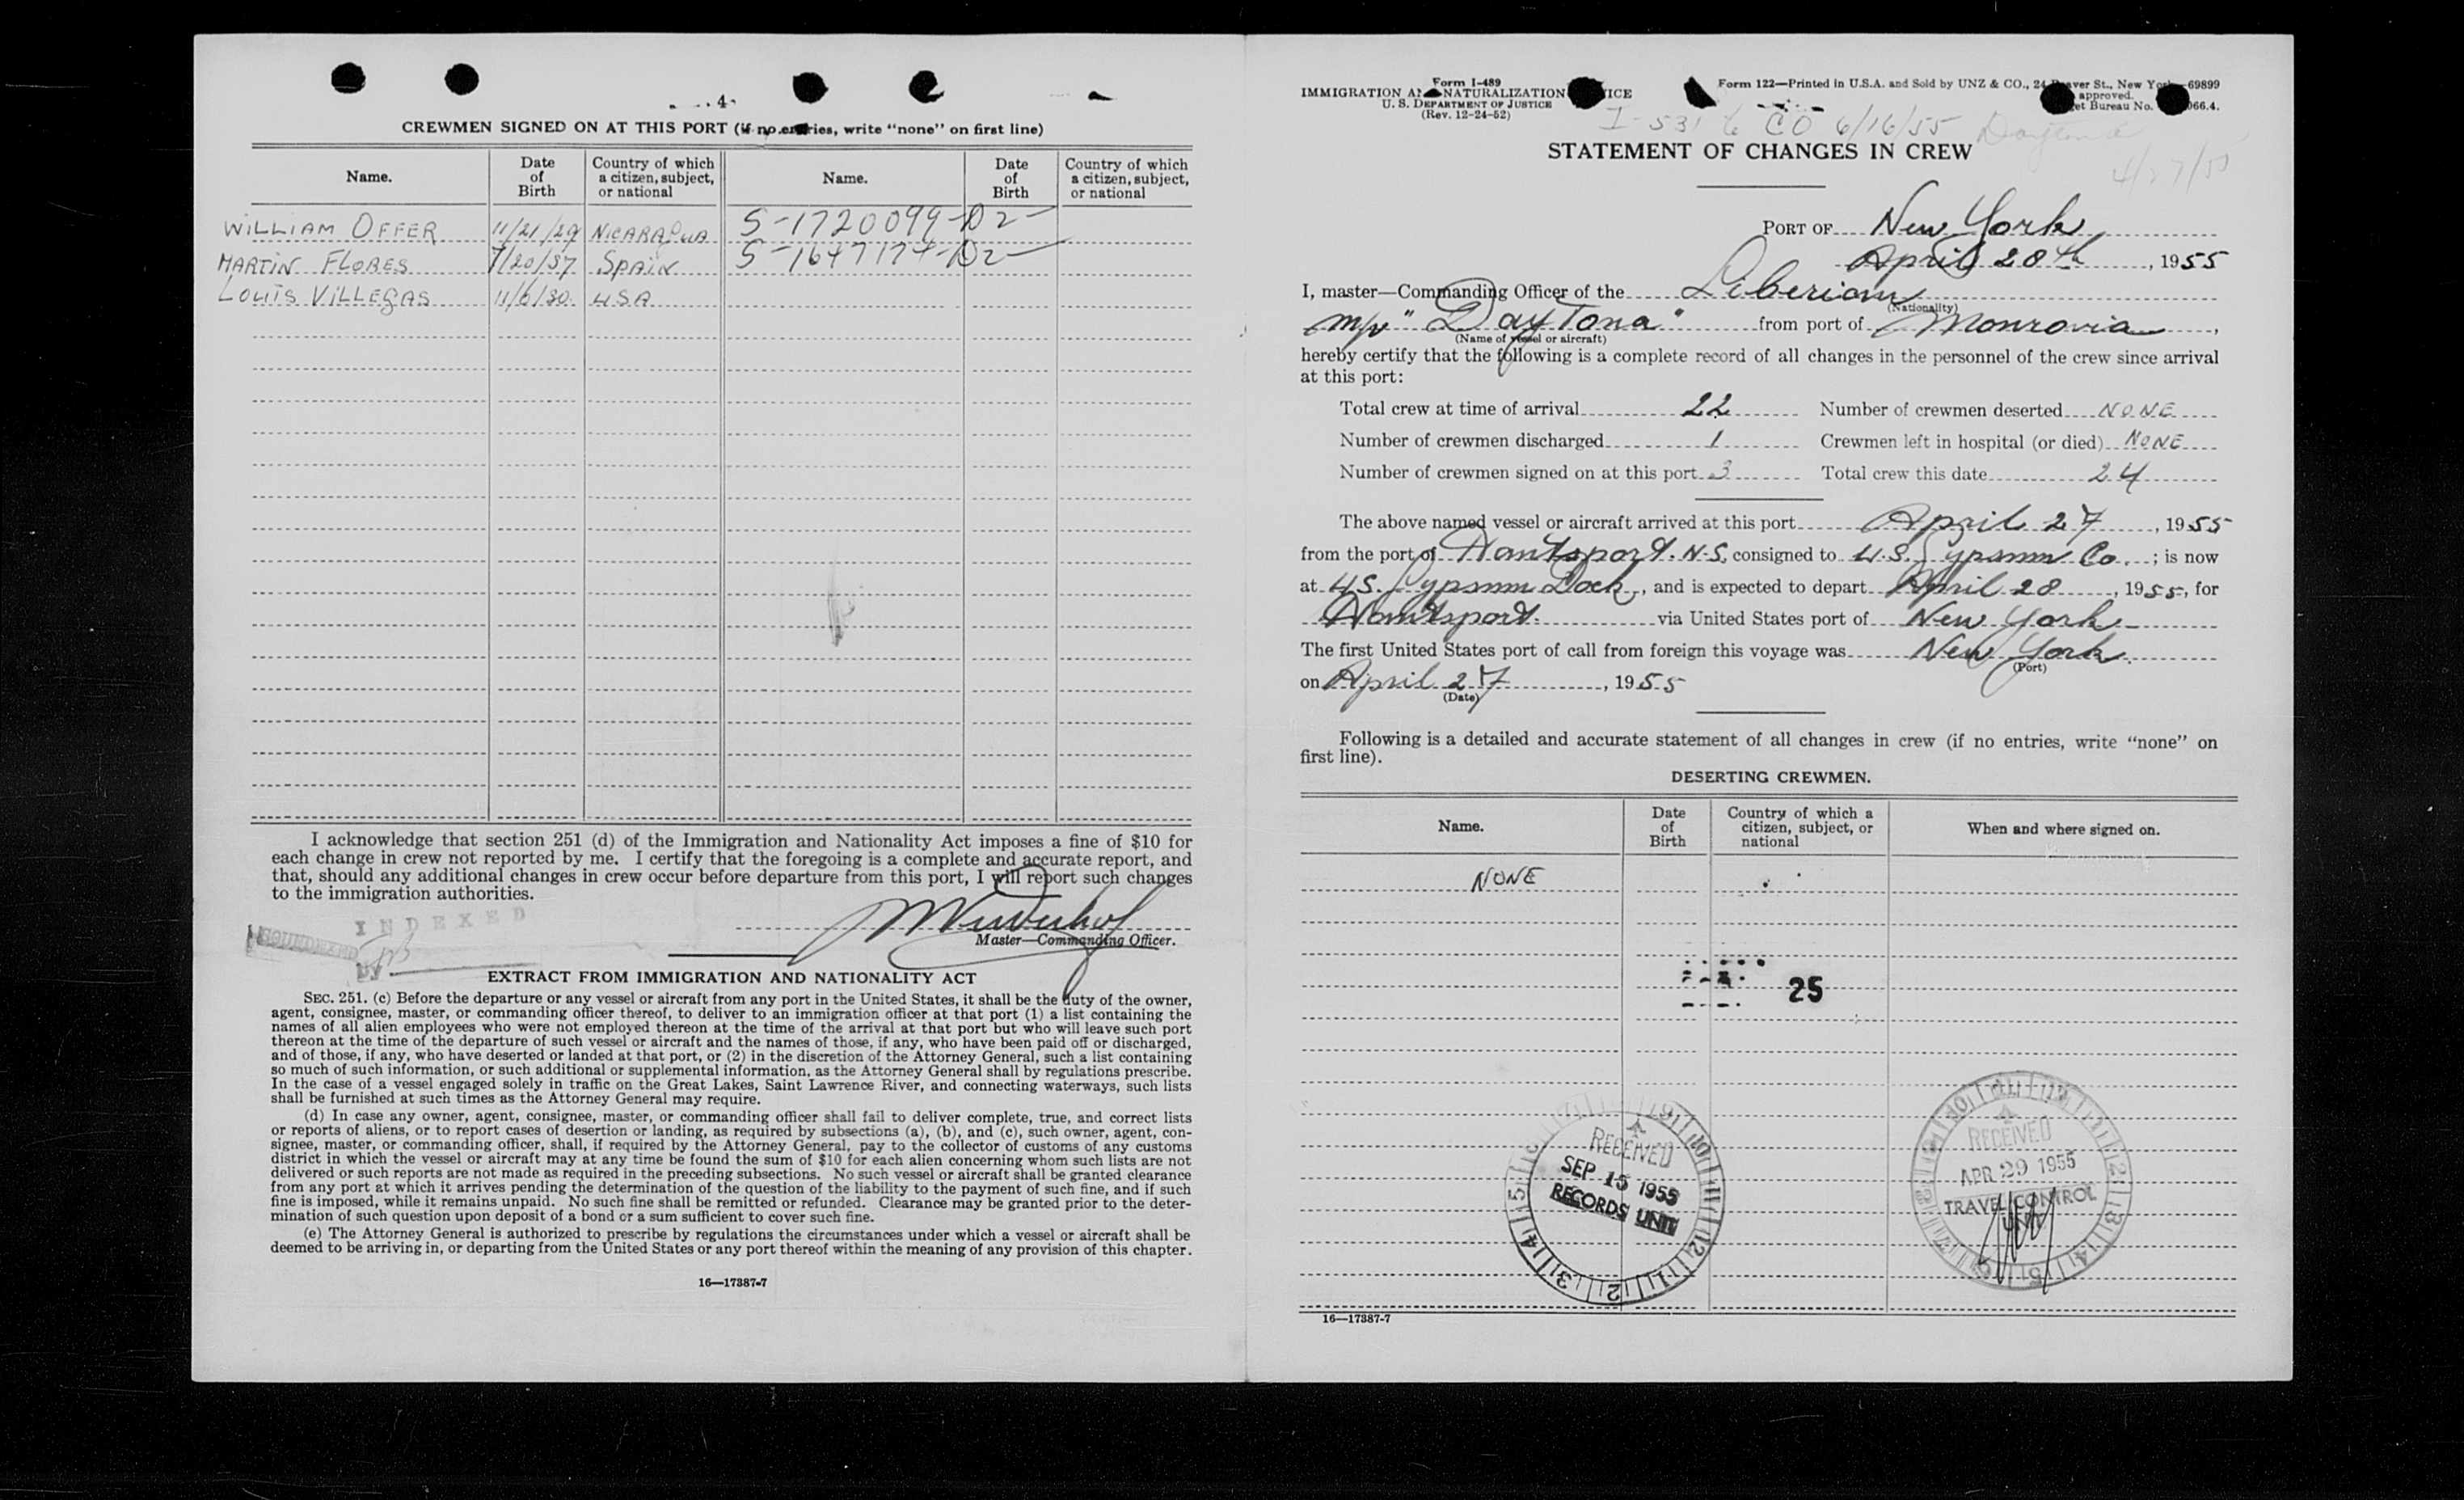 4
CREWMEN SIGNED ON AT THIS PORT (if no entries, write "none" on first line)
Name. Date of Birth Country of which a citizen, subject, or national Name. Date of Birth Country of which a citizen, subject, or national
WILLIAM OFFER 11/21/29 NICARAGUA S-1720099-D2-
MARTIN FLORES 7/20/37 SPAIN S-1647174-D2-
LOUIS VILLEGAS 11/6/30 USA
I acknowledge that section 251 (d) of the Immigration and Nationality Act imposes a fine of $10 for
each change in crew not reported by me. I certify that the foregoing is a complete and accurate report, and
that, should any additional changes in crew occur before departure from this port, I will report such changes
to the immigration authorities.
INDEXED
SOUNDEXED
BY
Master—Commanding Officer.
EXTRACT FROM IMMIGRATION AND NATIONALITY ACT
SEC. 251. (c) Before the departure or any vessel or aircraft from any port in the United States, it shall be the duty of the owner,
agent, consignee, master, or commanding officer thereof, to deliver to an immigration officer at that port (1) a list containing the
names of all alien employees who were not employed thereon at the time of the arrival at that port but who will leave such port
thereon at the time of the departure of such vessel or aircraft and the names of those, if any, who have been paid off or discharged,
and of those, if any, who have deserted or landed at that port, or (2) in the discretion of the Attorney General, such a list containing
so much of such information, or such additional or supplemental information, as the Attorney General shall by regulations prescribe.
In the case of a vessel engaged solely in traffic on the Great Lakes, Saint Lawrence River, and connecting waterways, such lists
shall be furnished at such times as the Attorney General may require.
(d) In case any owner, agent, consignee, master, or commanding officer shall fail to deliver complete, true, and correct lists
or reports of aliens, or to report cases of desertion or landing, as required by subsections (a), (b), and (c), such owner, agent, con-
signee, master, or commanding officer, shall, if required by the Attorney General, pay to the collector of customs of any customs
district in which the vessel or aircraft may at any time be found the sum of $10 for each alien concerning whom such lists are not
delivered or such reports are not made as required in the preceding subsections. No such vessel or aircraft shall be granted clearance
from any port at which it arrives pending the determination of the question of the liability to the payment of such fine, and if such
fine is imposed, while it remains unpaid. No such fine shall be remitted or refunded. Clearance may be granted prior to the deter-
mination of such question upon deposit of a bond or a sum sufficient to cover such fine.
(e) The Attorney General is authorized to prescribe by regulations the circumstances under which a vessel or aircraft shall be
deemed to be arriving in, or departing from the United States or any port thereof within the meaning of any provision of this chapter.
16—17387-7
Form I-489
IMMIGRATION AND NATURALIZATION ICE
U. S. DEPARTMENT OF JUSTICE
(Rev. 12-24-52)
Form 122—Printed in U.S.A. and Sold by UNZ & CO., 24 aver St., New York 69899
approved.
et Bureau No. 066.4.
I-531 CO 6/16/55 Daytona
4/27/55
STATEMENT OF CHANGES IN CREW
PORT OF New York
April 28th, 1955
I, master—Commanding Officer of the Liberian
(Nationality)
m/v "Daytona" from port of Monrovia,
(Name of vessel or aircraft)
hereby certify that the following is a complete record of all changes in the personnel of the crew since arrival
at this port:
Total crew at time of arrival 22 Number of crewmen deserted NONE
Number of crewmen discharged 1 Crewmen left in hospital (or died) NONE
Number of crewmen signed on at this port 3 Total crew this date 24
The above named vessel or aircraft arrived at this port April 27, 1955
from the port of Hantsport. N.S. consigned to U.S. Gypsum Co.; is now
at U.S. Gypsum Dock, and is expected to depart April 28, 1955, for
Hantsport. via United States port of New York
The first United States port of call from foreign this voyage was New York.
(Port)
on April 27, 1955
(Date)
Following is a detailed and accurate statement of all changes in crew (if no entries, write "none" on
first line).
DESERTING CREWMEN.
Name. Date of Birth Country of which a citizen, subject, or national When and where signed on.
NONE
25
RECEIVED
SEP 15 1955
RECORDS UNIT
RECEIVED
APR 29 1955
TRAVEL CONTROL
UNIT
16—17387-7